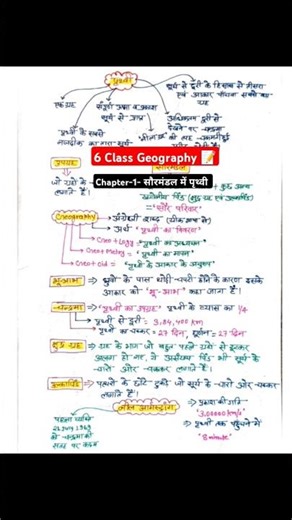 पृथ्वी
एक ग्रह
संपूर्ण ऊष्मा व प्रकाश
सूर्य से प्राप्त
सूर्य से दूरी के हिसाब से तीसरा
एवं आकार पाँचवा सबसे बड़ा
ग्रह
अधिकतम दूरी से
देखने पर
पृथ्वी के सबसे
नजदीक का तारा सूर्य
6 Class Geography 📝
उपग्रह
Chapter-1- सौरमंडल में पृथ्वी
लगाते हैं।
"सौर परिवार"
Geography
अंग्रेजी शब्द
अर्थ "पृथ्वी का विवरण"
Geo + Logy = "पृथ्वी का अध्ययन"
Geo + Metry = "पृथ्वी का मापन"
Geo + oid = "पृथ्वी के आकार के अनुरूप"
भू-आभ
ध्रुवों के पास थोड़ी चपटी होने के कारण इसके
आकार को "भू-आभ" कहा जाता है।
चन्द्रमा
"पृथ्वी का उपग्रह" पृथ्वी के व्यास का 1/4
पृथ्वी से दूरी = 3,84,400 km
पृथ्वी का चक्कर = 27 दिन, घूर्णन = 27 दिन
क्षुद्र ग्रह
ग्रह के भाग जो बहुत पहले ग्रहों से टूटकर
अलग हो गए, ये असंख्य पिंड भी सूर्य के
चारों ओर चक्कर लगाते हैं।
उल्कापिंड
पत्थरों के छोटे-टुकड़े जो सूर्य के चारों ओर चक्कर
लगाते हैं।
नील आर्मस्ट्रांग
पहला व्यक्ति
21 July 1969
को चन्द्रमा की
सतह पर कदम
प्रकाश की गति
"3,00000 km/s"
पृथ्वी तक पहुंचने में
"8 minute"